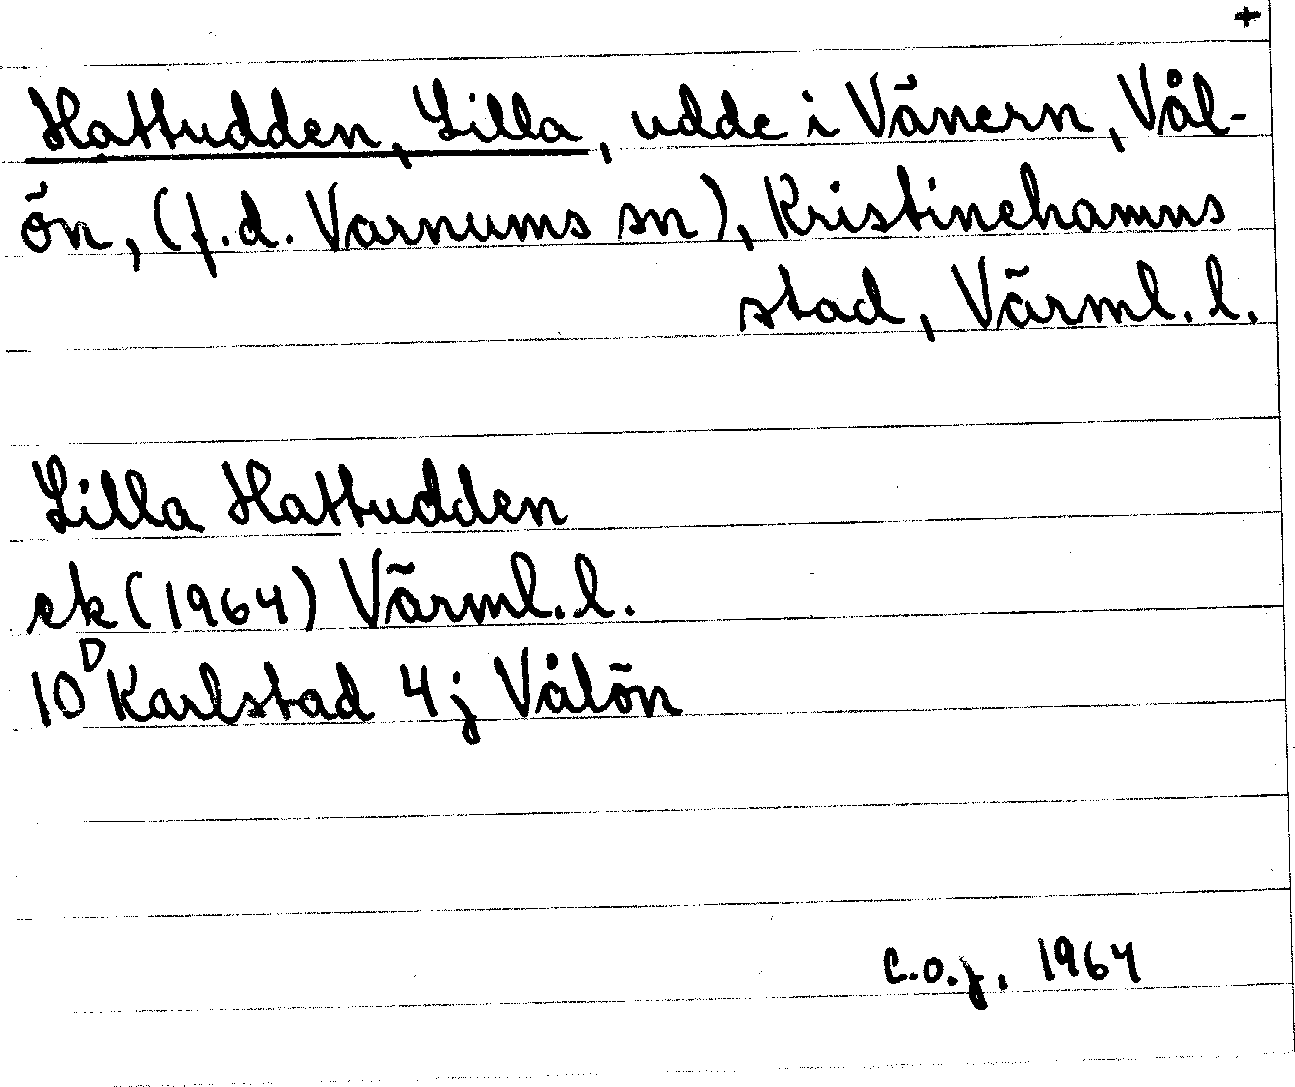 +
Hattudden, Lilla, udde i Vänern, Vål-
ön, (f.d. Varnums sn), Kristinehamns
stad, Värml. l.
Lilla Hattudden
ek (1964) Värml. l.
10D Karlstad 4j Vålön
C.O.J. 1964